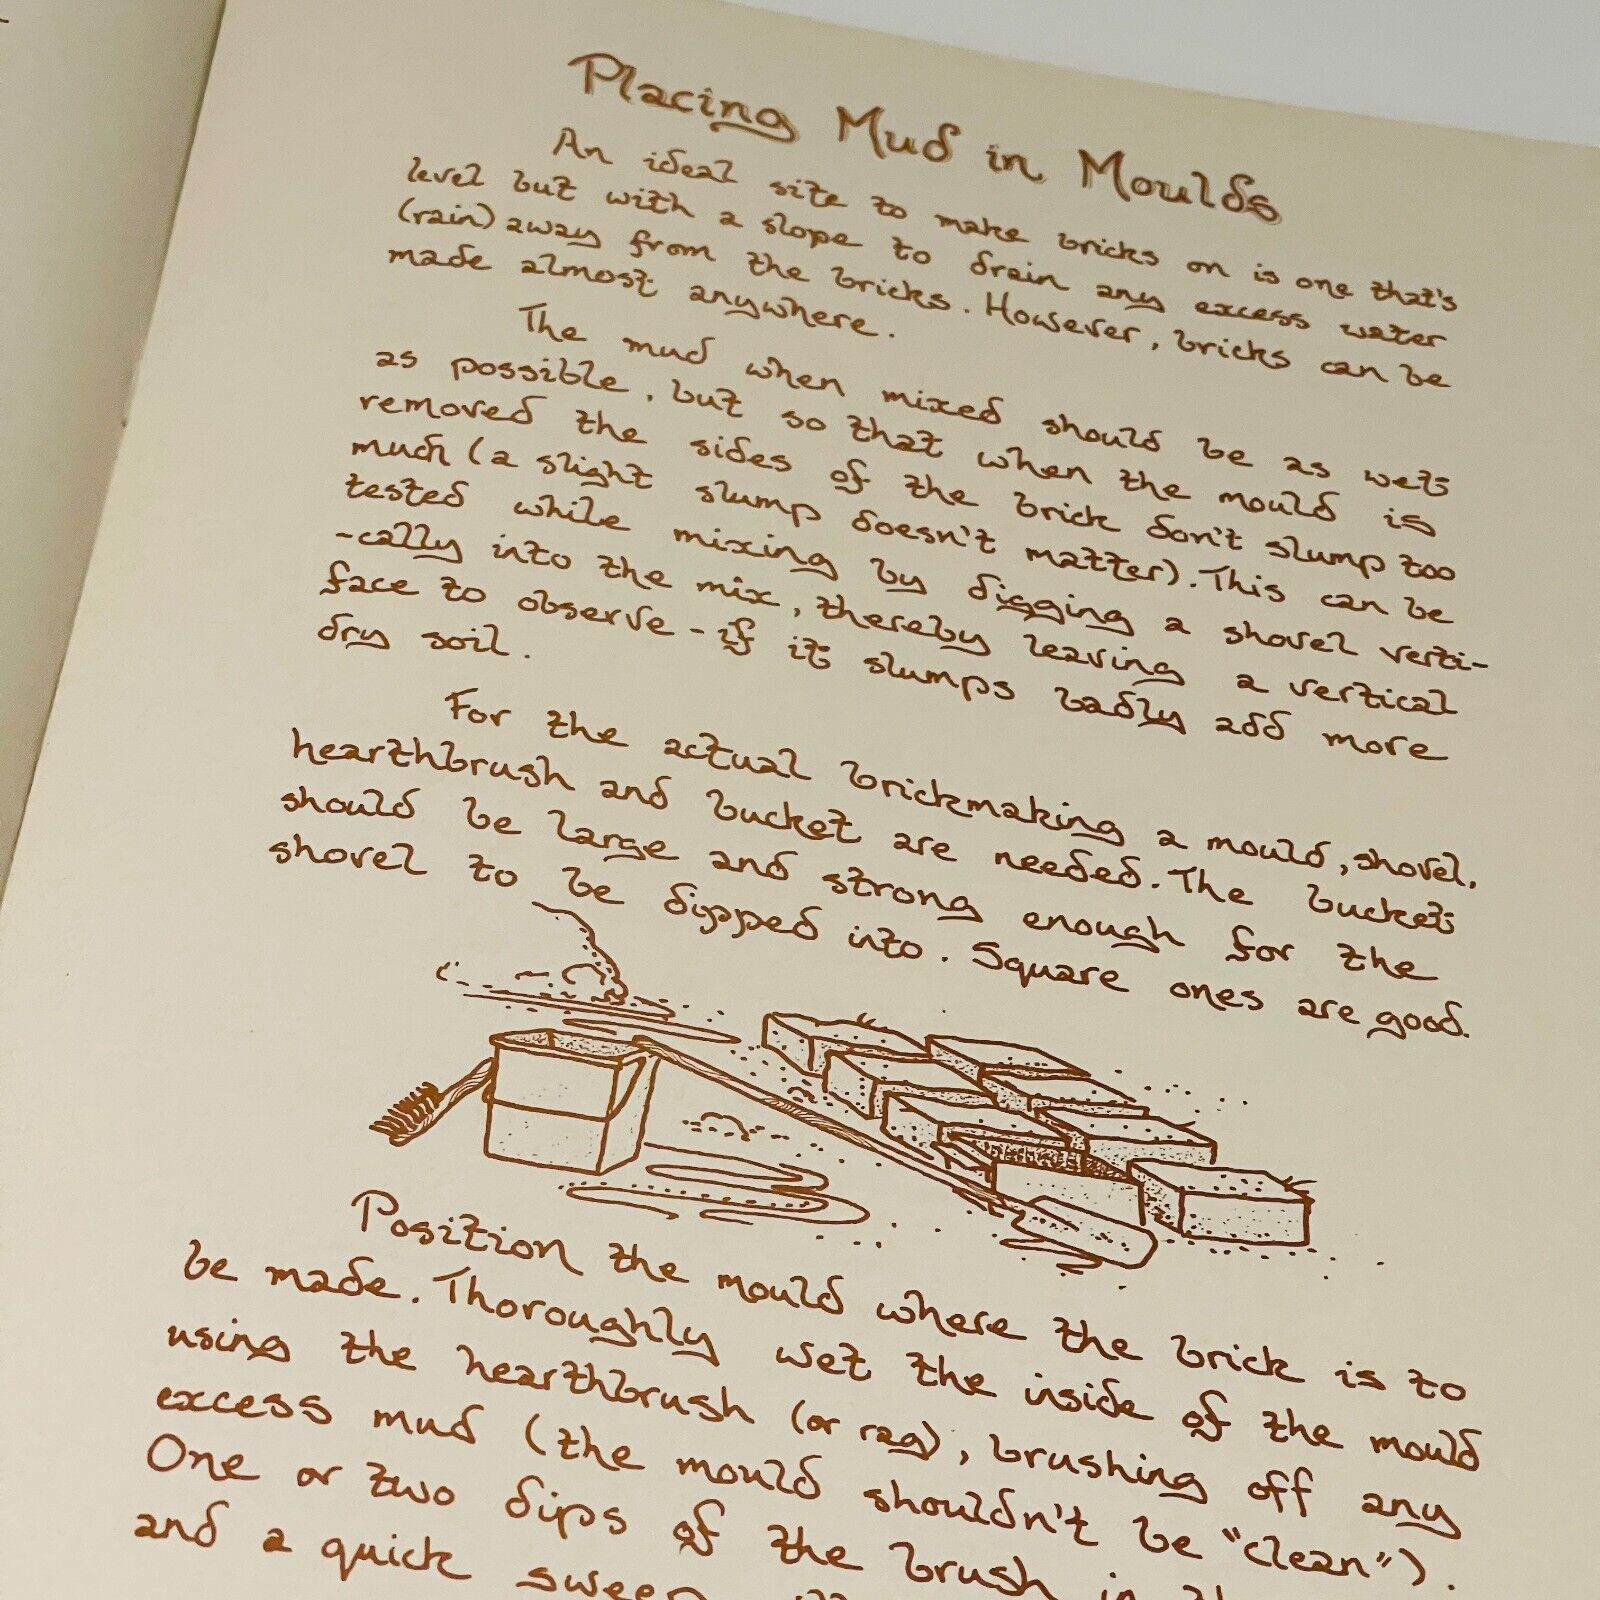 Placing Mud in Moulds
An ideal site to make bricks on is one that's
level but with a slope to drain any excess water
(rain) away from the bricks. However, bricks can be
made almost anywhere.
The mud when mixed should be as wet
as possible, but so that when the mould is
removed the sides of the brick don't slump too
much (a slight slump doesn't matter). This can be
tested while mixing by digging a shovel verti-
-cally into the mix, thereby leaving a vertical
face to observe - if it slumps badly add more
dry soil.
For the actual brickmaking a mould, shovel,
hearthbrush and bucket are needed. The bucket
should be large and strong enough for the
shovel to be dipped into. Square ones are good.
Position the mould where the brick is to
be made. Thoroughly wet the inside of the mould
using the hearthbrush (or rag), brushing off any
excess mud (the mould shouldn't be "clean").
One or two dips of the brush in
and a quick sweep